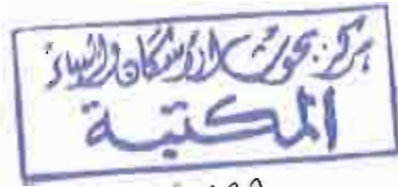 مركز بحوث الإسكان والبناء
المكتبة